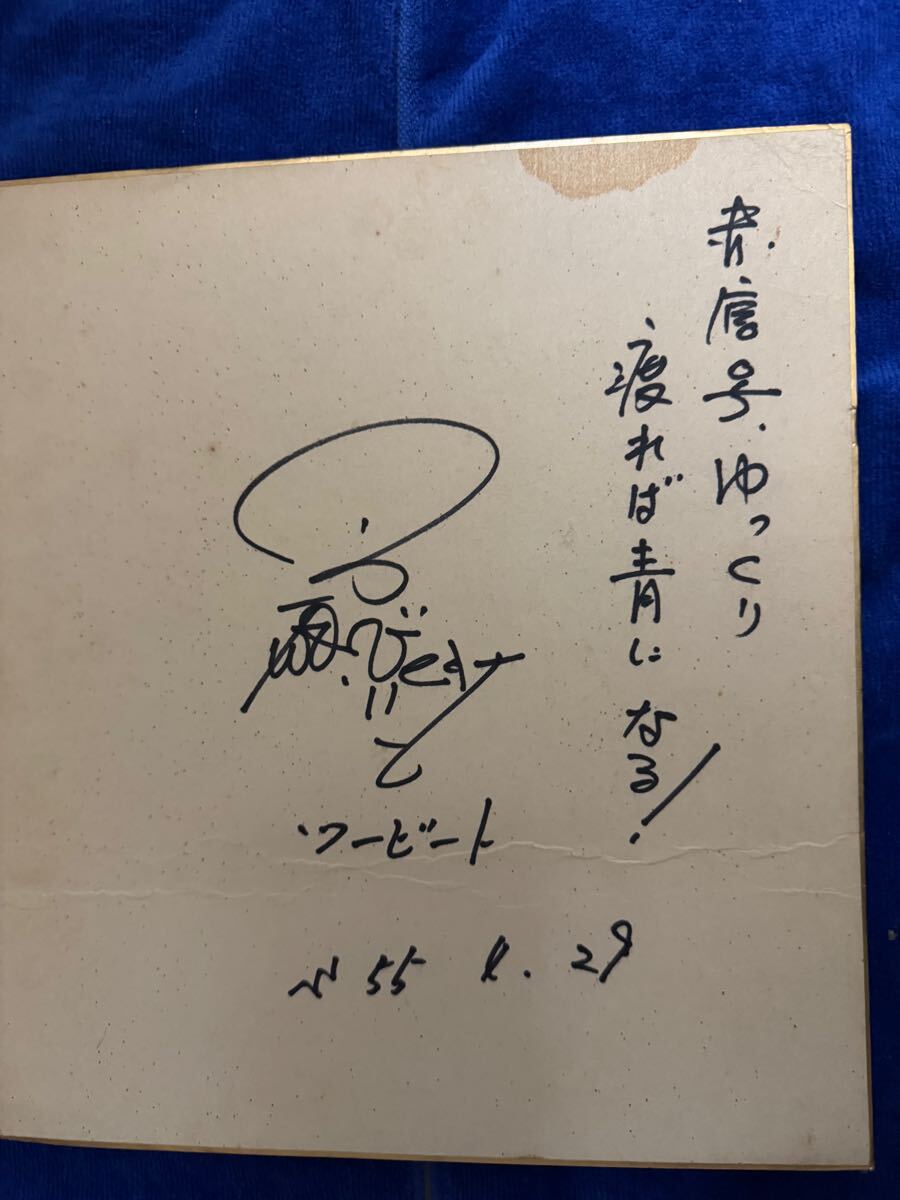 赤信号、ゆっくり
渡れば青になる!
ツービート
55 4. 29